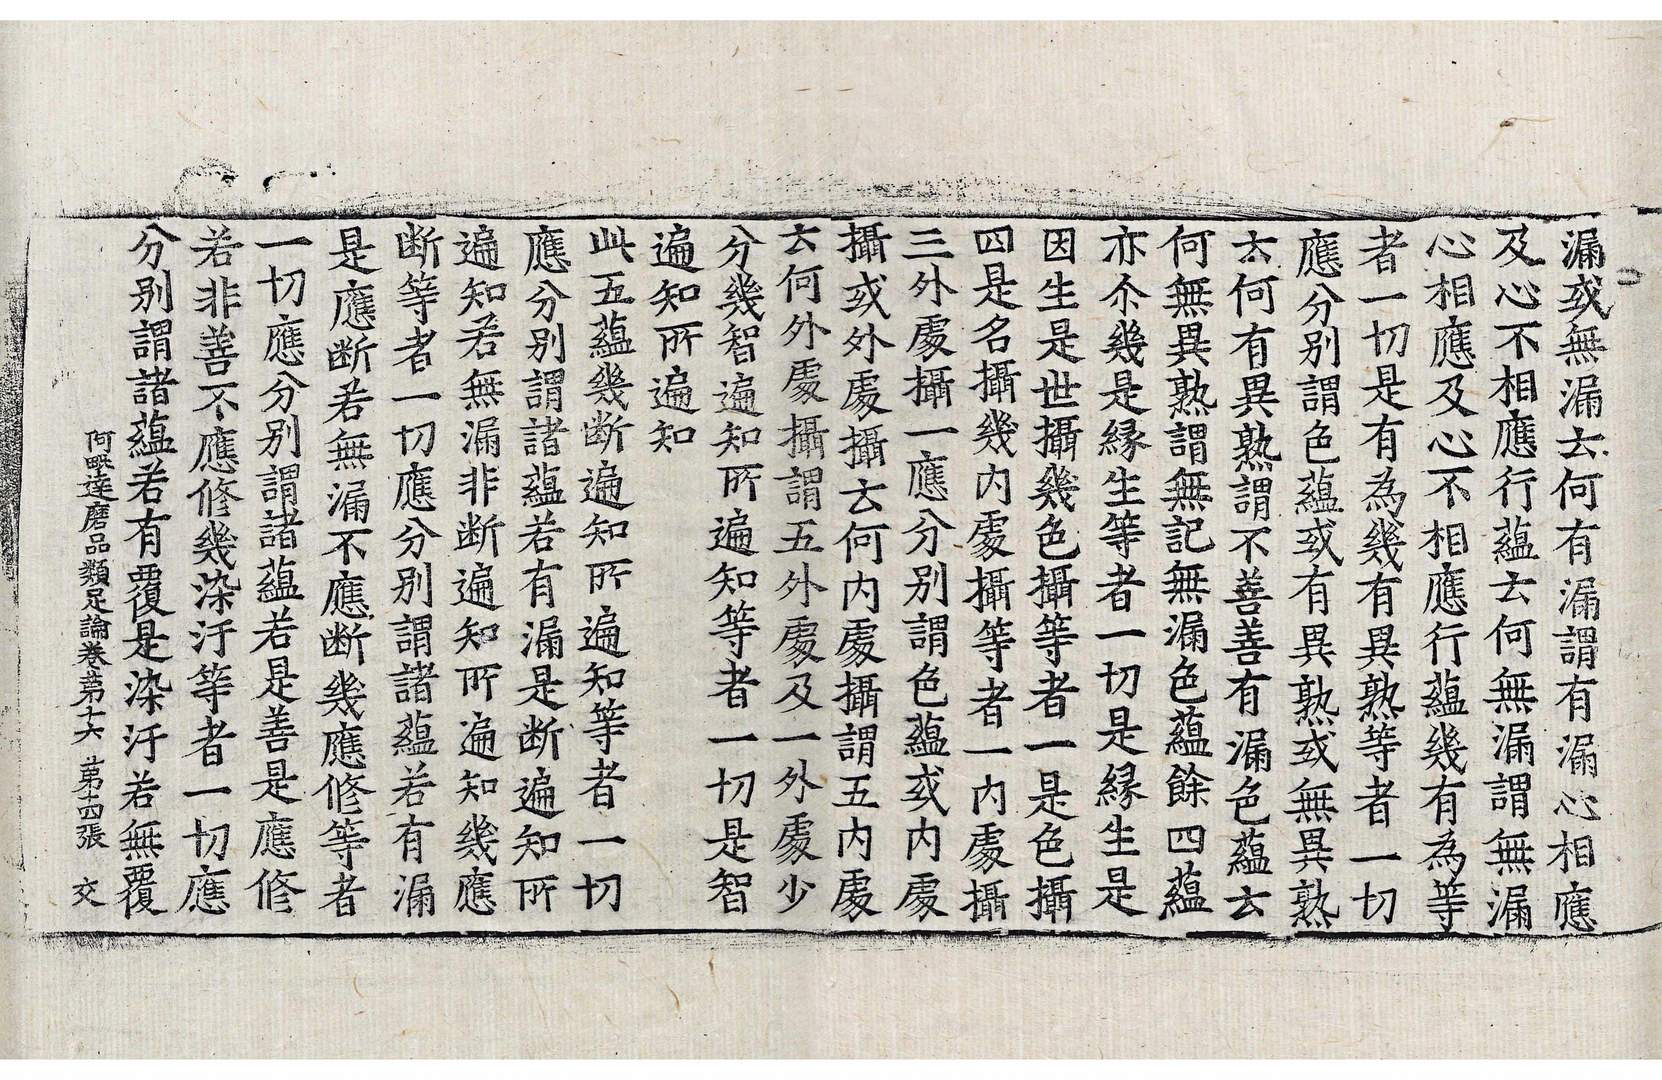 漏或無漏云何有漏謂有漏心相應
及心不相應行蘊云何無漏謂無漏
心相應及心不相應行蘊幾有為等
者一切是有為幾有異熟等者一切
應分別謂色蘊或有異熟或無異熟
云何有異熟謂不善善有漏色蘊云
何無異熟謂無記無漏色蘊餘四蘊
亦尒幾是緣生等者一切是緣生是
因生是世攝幾色攝等者一是色攝
四是名攝幾內處攝等者一內處攝
三外處攝一應分別謂色蘊或內處
攝或外處攝云何內處攝謂五內處
云何外處攝謂五外處及一外處少
分幾智遍知所遍知等者一切是智
遍知所遍知
此五蘊幾斷遍知所遍知等者一切
應分別謂諸蘊若有漏是斷遍知所
遍知若無漏非斷遍知所遍知幾應
斷等者一切應分別謂諸蘊若有漏
是應斷若無漏不應斷幾應修等者
一切應分別謂諸蘊若是善是應修
若非善不應修幾染汙等者一切應
分別謂諸蘊若有覆是染汙若無覆
阿毗達磨品類足論卷第十六 第十四張 交